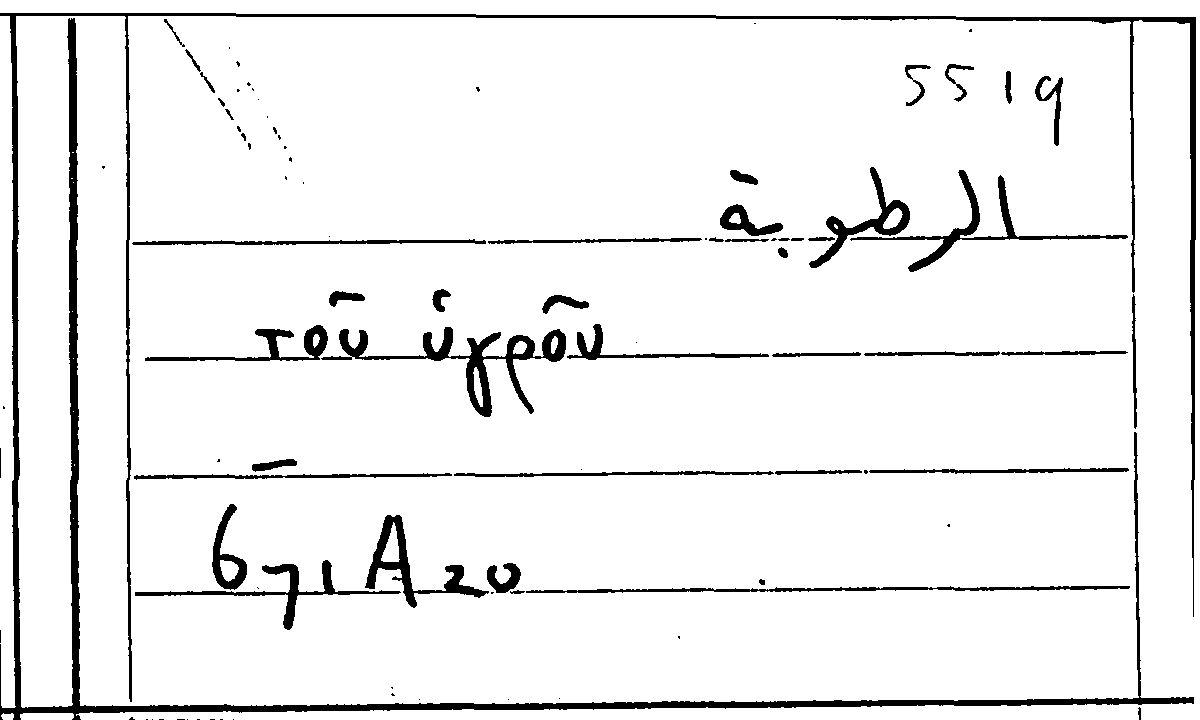 5519
الرطوبة
τοῦ ὑγροῦ
671 A 20